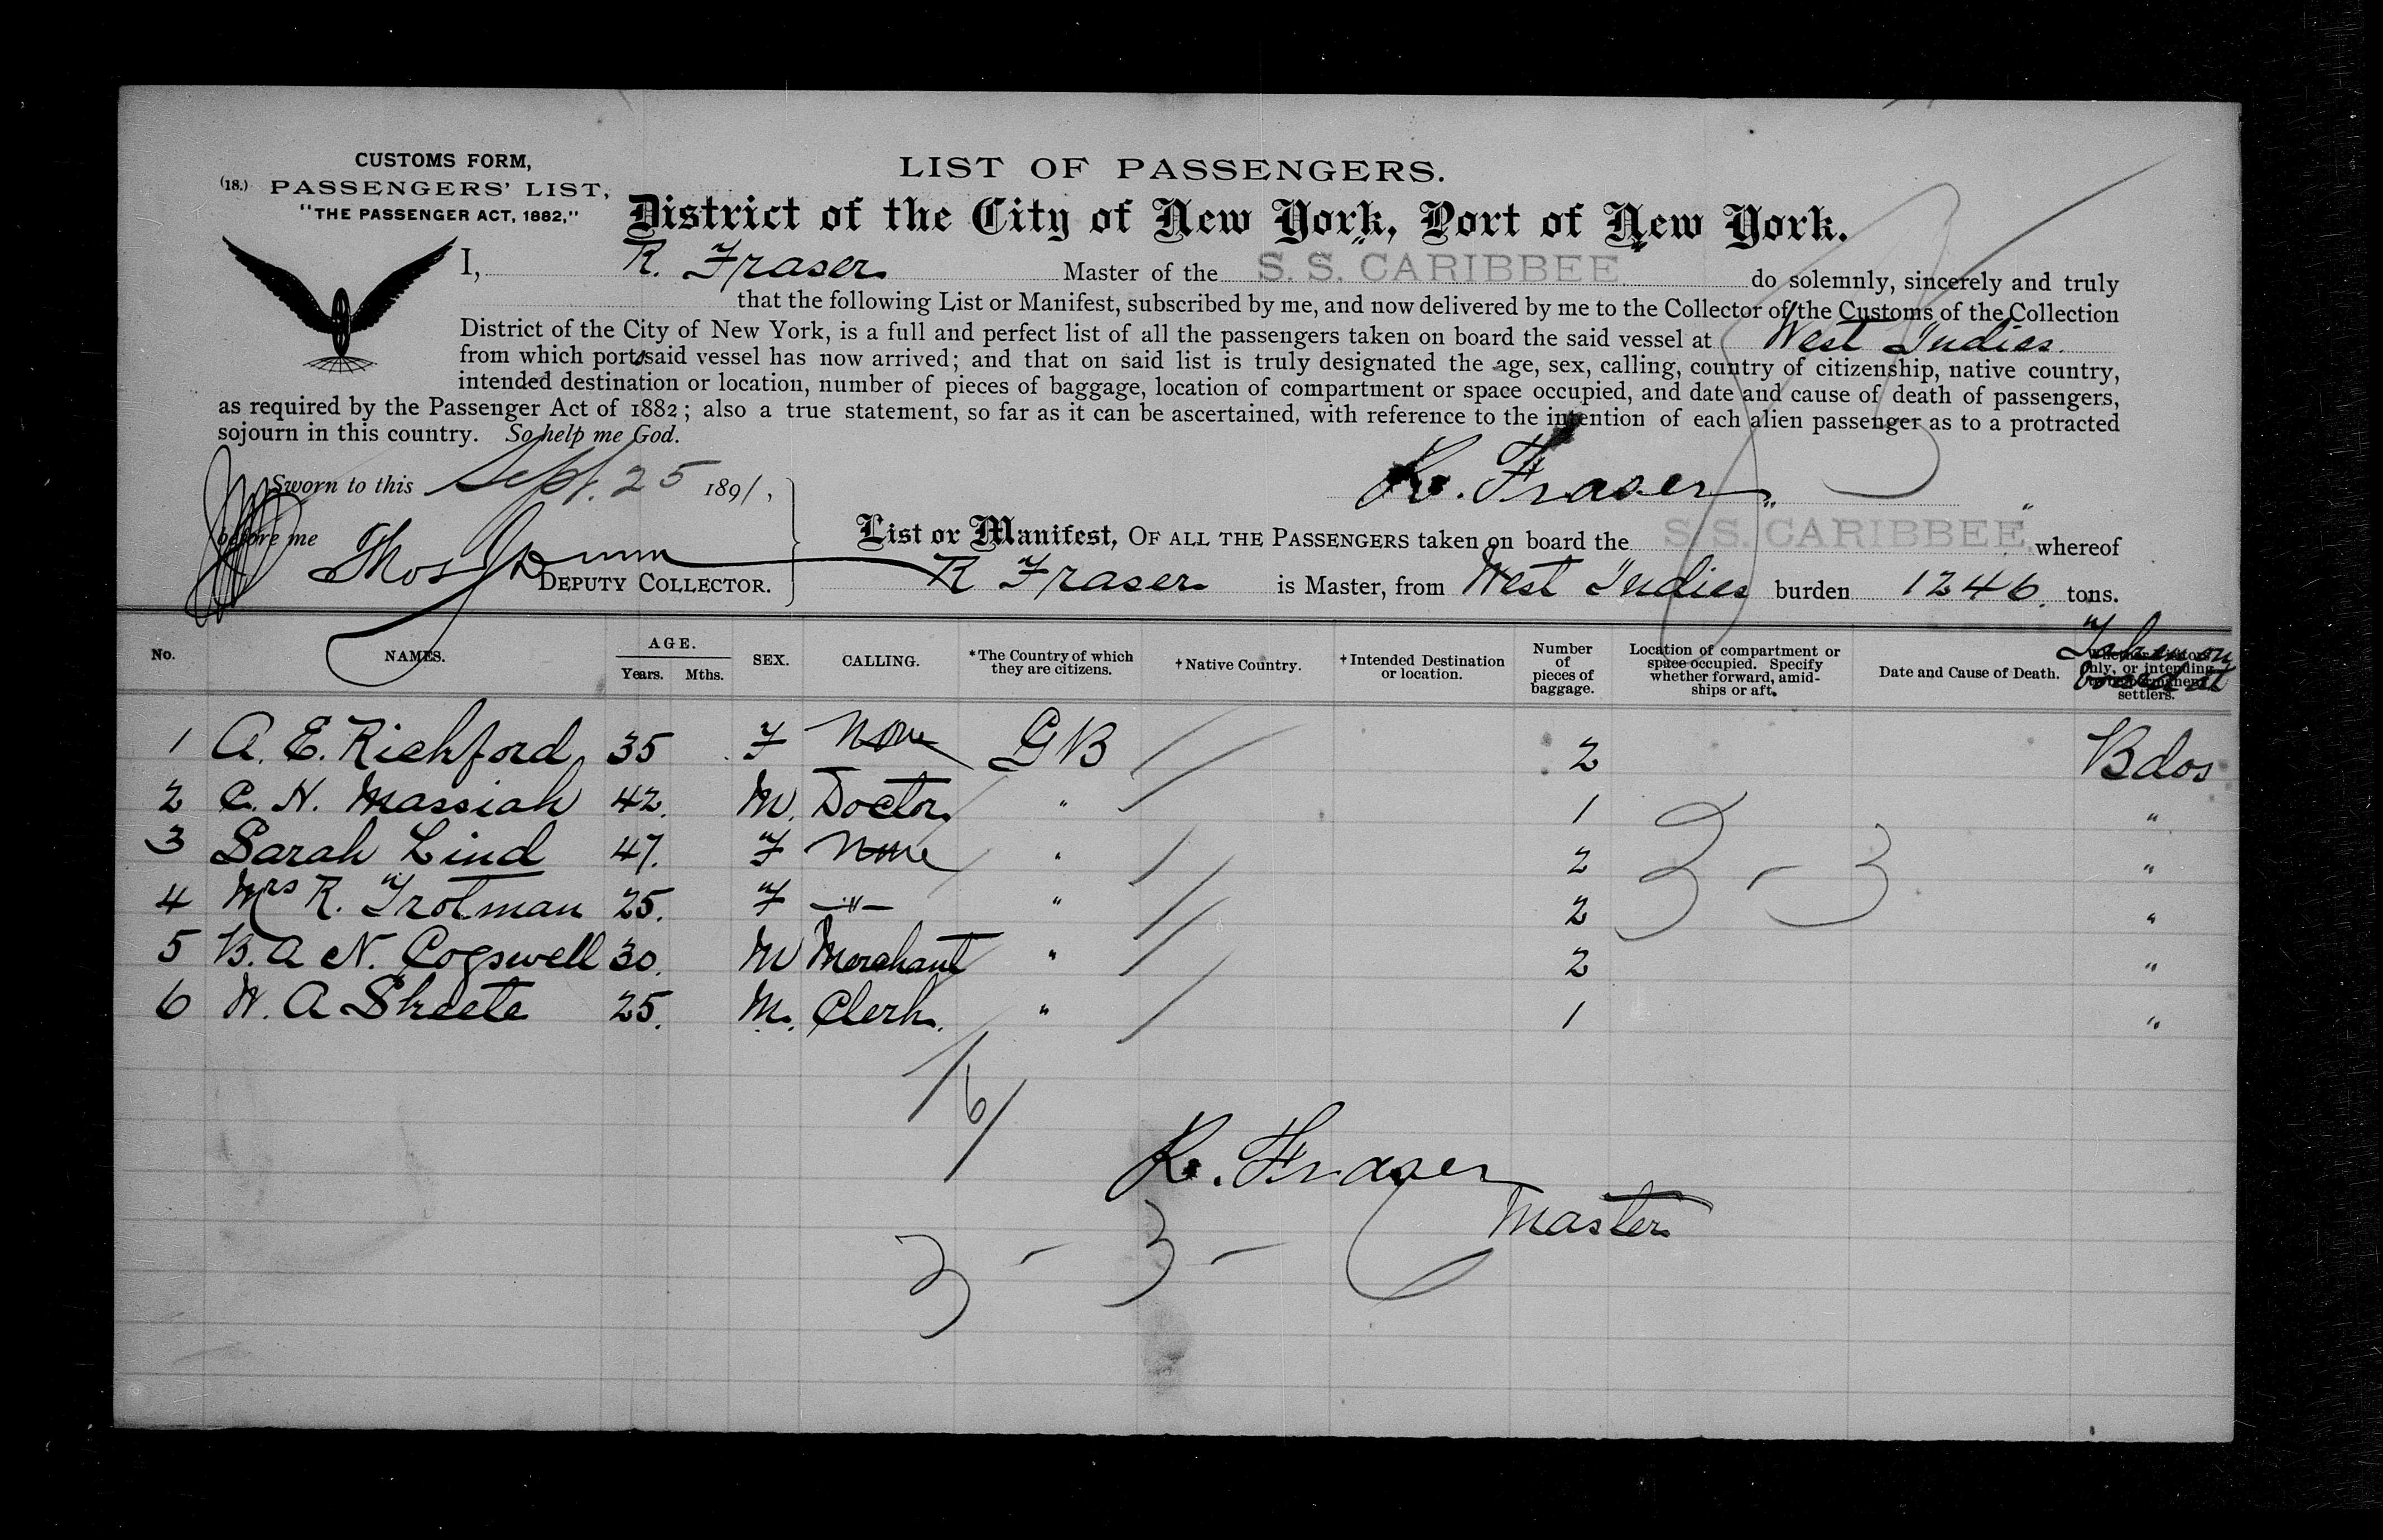 CUSTOMS FORM,
(18.) PASSENGERS' LIST,
"THE PASSENGER ACT, 1882,"
LIST OF PASSENGERS.
District of the City of New York, Port of New York.
I, R. Fraser Master of the S. S. CARIBBEE do solemnly, sincerely and truly
that the following List or Manifest, subscribed by me, and now delivered by me to the Collector of the Customs of the Collection
District of the City of New York, is a full and perfect list of all the passengers taken on board the said vessel at West Indies
from which ports said vessel has now arrived; and that on said list is truly designated the age, sex, calling, country of citizenship, native country,
intended destination or location, number of pieces of baggage, location of compartment or space occupied, and date and cause of death of passengers,
as required by the Passenger Act of 1882; also a true statement, so far as it can be ascertained, with reference to the intention of each alien passenger as to a protracted
sojourn in this country. So help me God.
Sworn to this Sept. 25 1891,
R. Fraser
before me Thos Dunn
DEPUTY COLLECTOR.
List or Manifest, OF ALL THE PASSENGERS taken on board the S. S. CARIBBEE, whereof
R Fraser is Master, from West Indies burden 1246. tons.
No. NAMES. AGE. Years. Mths. SEX. CALLING. *The Country of which they are citizens. †Native Country. †Intended Destination or location. Number of pieces of baggage. Location of compartment or space occupied. Specify whether forward, amidships or aft. Date and Cause of Death. Taken on board at
1 A. E. Richford 35 F None GB 2 Bdos
2 C. N. Massiah 42. M. Doctor " 1 "
3 Sarah Lind 47. F None " 2 "
4 Mrs R. Trotman 25. F —"— " 2 "
5 B. A N. Cogswell 30. M Merchant " 2 "
6 W. A Skeete 25. M. Clerk. " 1 "
3 - 3
/6/
R. Fraser
Master
3 - 3 -